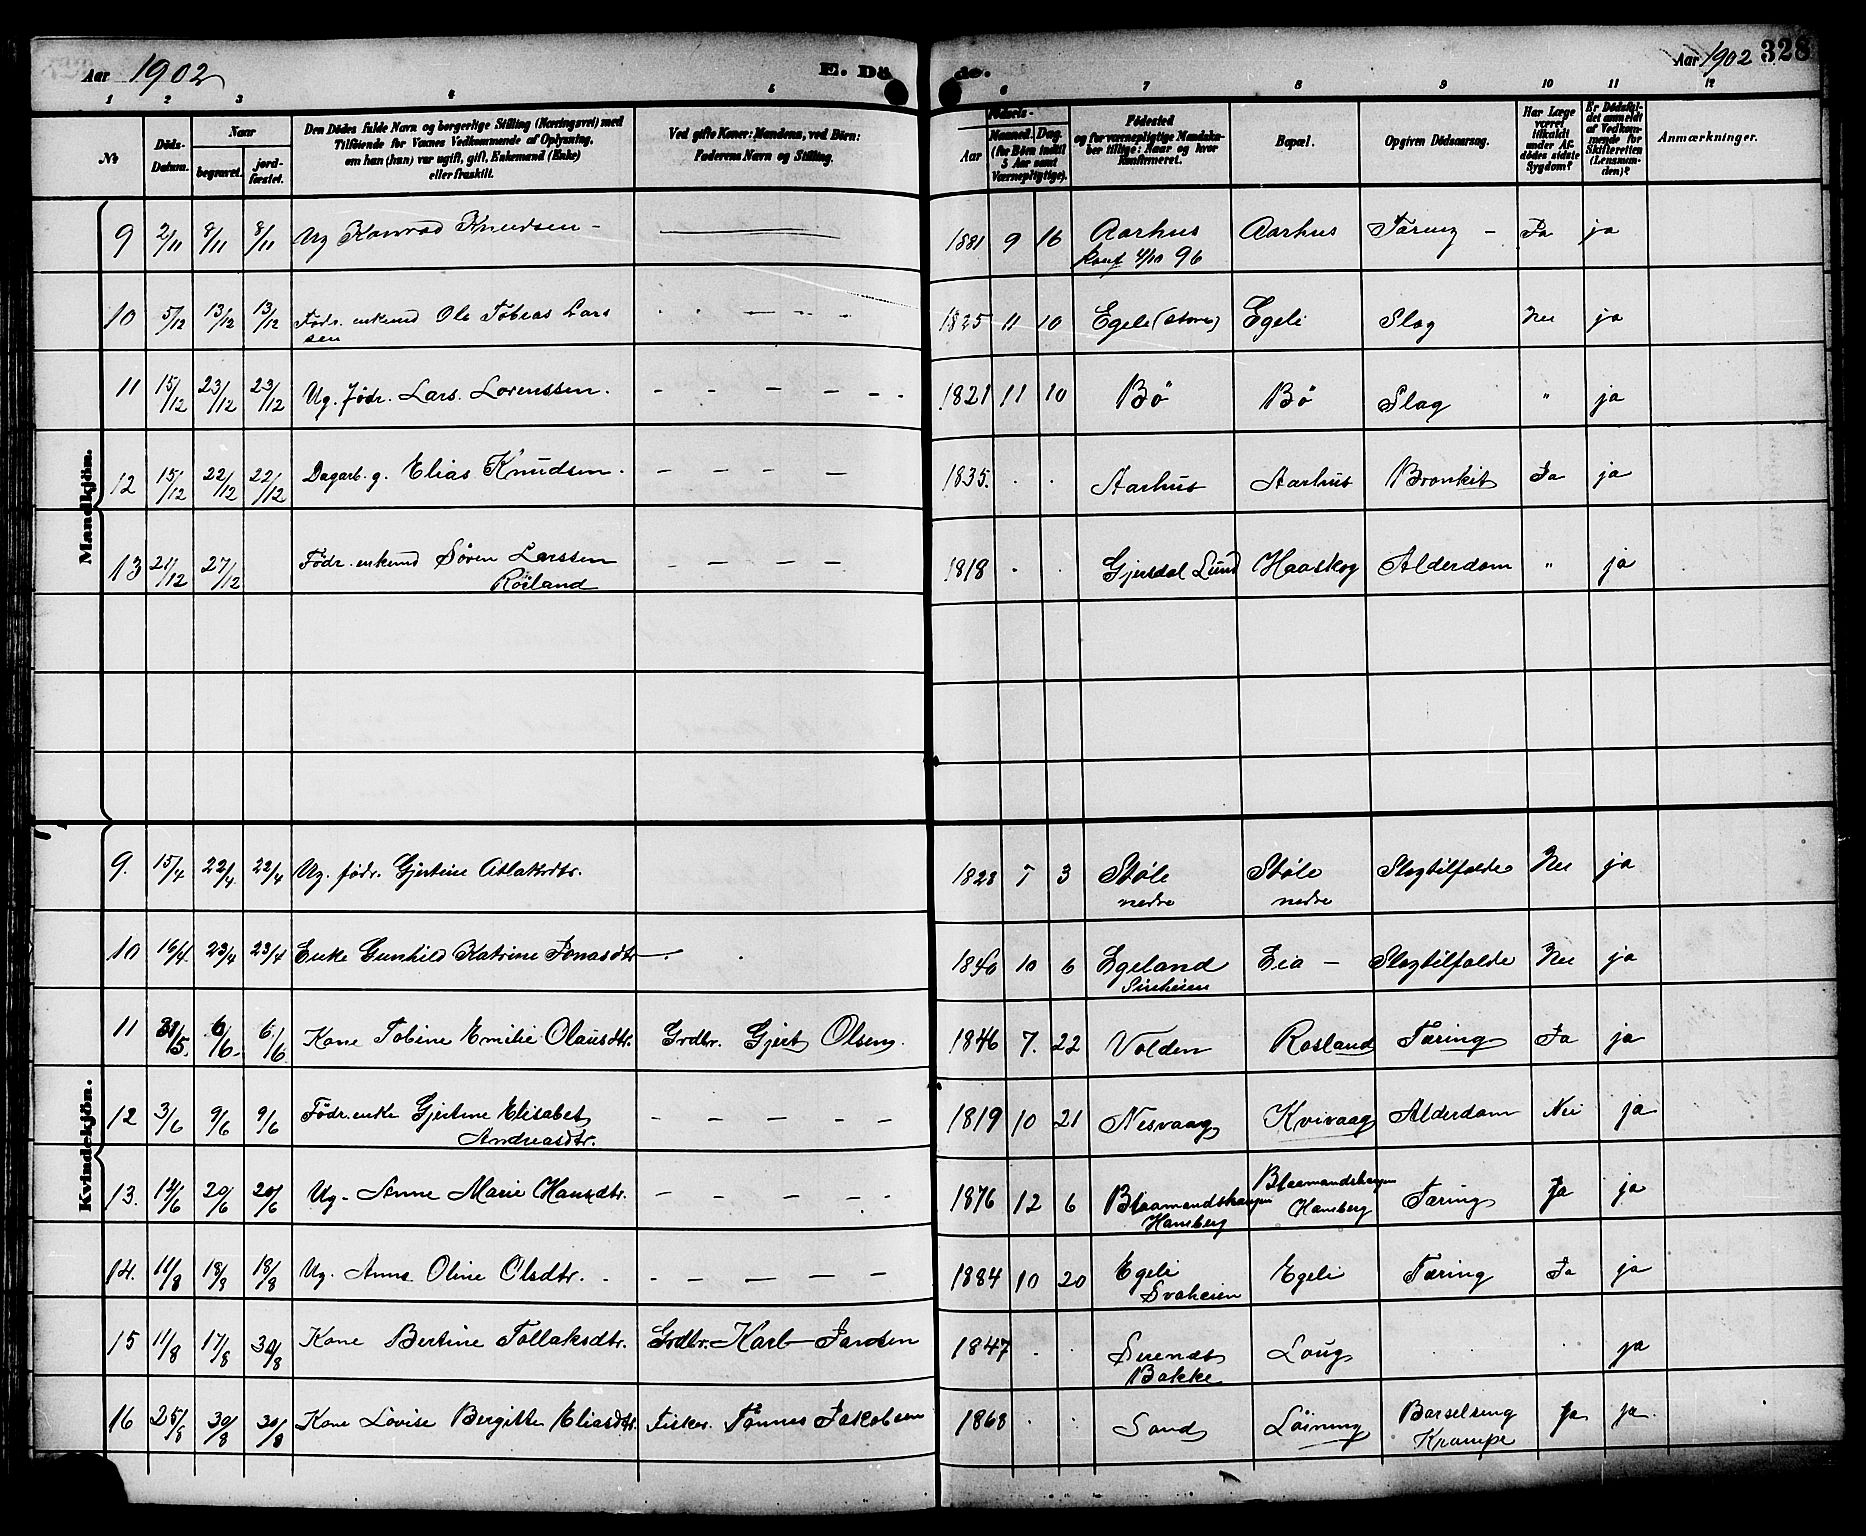 Aar 1902 E. Döde. Aar 1902 328
1 2 3 4 5 6 7 8 9 10 11 12
No Döds-Datum. Naar begravet. jordfæstet. Den Dödes fulde Navn og borgerlige Stilling (Næringsvei) med Tilföiende for Voxnes Vedkommende af Oplysning, om han (hun) var ugift, gift, Enkemand (Enke) eller fraskilt. Ved gifte Koner: Mandens, ved Börn: Faderens Navn og Stilling. Fødsels- Aar Maaned. Dag. (for Börn indtil 5 Aar samt Værnepligtige). Födested og for værnepligtige Mandskaber tillige: Naar og hvor Konfirmeret. Bopæl. Opgiven Dödsaarsag. Har Læge været tilkaldt under Afdödes sidste Sygdom? Er Dödsfaldet anmeldt af Vedkommende for Skifteretten (Lensmanden)? Anmærkninger.
Mandkjön.
9 2/11 8/11 8/11 Ug Konrad Knudsen – 1881 9 16 Aarhus Aarhus Tæring – Ja ja
konf 4/10 96
10 5/12 13/12 13/12 Födr. enkemd Ole Tobias Lars 1825 11 10 Egeli (store) Egeli Slag Nei ja
sen
11 15/12 23/12 23/12 Ug. födr. Lars Lorenssen. – – – – 1821 11 10 Bö Bö Slag " ja
12 15/12 22/12 22/12 Dagarb. g. Elias Knudsen. – – – – 1835. . . Aarhus Aarhus Bronkit Ja ja
13 21/12 27/12 Födr. enkemd Sören Larssen – – – – 1818 . . Gjersdal Lund Haaskog Alderdom " ja
Rösland
Kvindekjön.
9. 15/4 22/4 22/4 Ug. födr. Gjertine Atlaksdtr. 1828 5 3 Stöle Stöle Slagtilfælde Nei ja
nedre nedre
10 16/4 23/4 23/4 Enke Gunhild Katrine Jonasdtr 1840 10 6 Egeland Eia – Slagtilfælde Nei ja
Sireheien
11 31/5. 6/6. 6/6 Kone Tobine Emilie Olausdtr. Grdbr. Gjert Olsen. 1846 7. 22 Volden Rosland Tæring Ja ja
12 3/6 9/6 9/6 Födr. enke Gjertine Elisabet – – – – 1819 10 21 Nesvaag Kvivaag Alderdom Nei ja
Andreasdtr.
13. 14/6 20/6 20/6 Ug. Senne Marie Hansdtr. – – – – – 1876 12 6 Blaamandshaugen Blaamandshaugen Tæring Ja ja
Hamberg Hamberg
14. 11/8 18/8 18/8 Ug. Anna Oline Olsdtr. – – – – – 1884 10 20 Egeli Egeli Tæring Ja ja
Svaheien
15 11/8 17/8 30/8 Kone Bertine Tollaksdtr. Grdbr. Karl Jansen 1847 . . Surendt Loug . . . ja
Bakke
16 25/8 30/8 30/8 Kone Lovise Bergitte Eliasdtr. Fisker. Tönnes Jakobsen 1868 . . Sand Löining Barselseng Ja ja.
Krampe